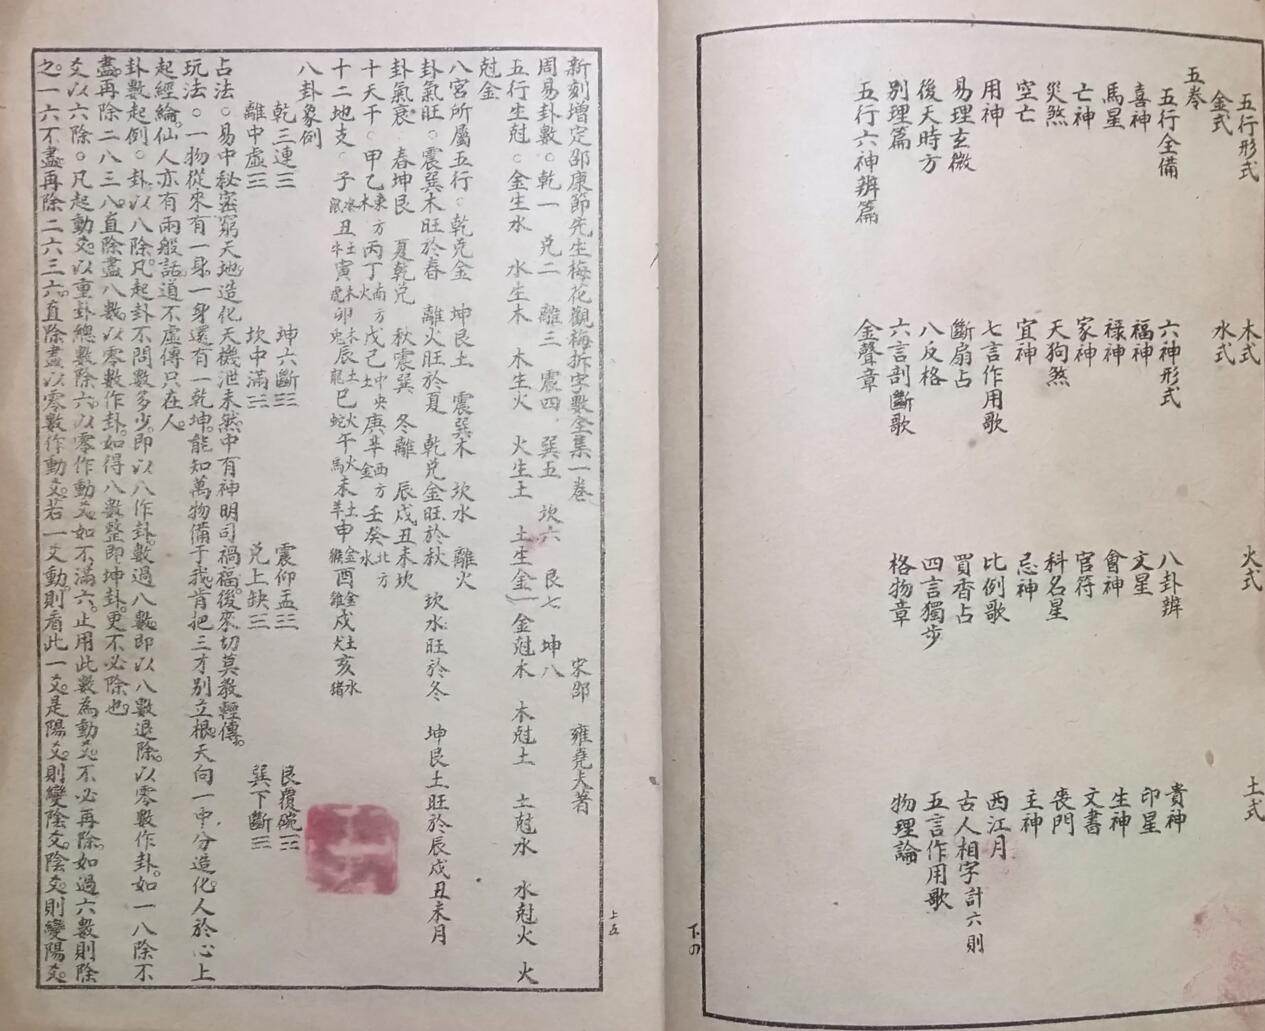 五行形式 木式 火式 土式
金式 水式
五卷
五行全備 六神形式 八卦辨 貴神
喜神 福神 文星 印星
馬星 祿神 會神 生神
亡神 家神 官符 文書
災煞 天狗煞 科名星 喪門
空亡 宜神 忌神 主神
用神 七言作用歌 比例歌 西江月
易理玄微 斷扇占 買香占 古人相字計六則
後天時方 八反格 四言獨步 五言作用歌
別理篇 六言剖斷歌 格物章 物理論
五行六神辨篇 金聲章
下の
上五
新刻增定邵康節先生梅花觀梅拆字數全集一卷 宋邵 雍堯夫著
周易卦數。乾一 兑二 離三 震四 巽五 坎六 艮七 坤八
五行生尅。金生水 水生木 木生火 火生土 土生金 金尅木 木尅土 土尅水 水尅火 火
尅金
八宮所屬五行。乾兑金 坤艮土 震巽木 坎水 離火
卦氣旺。震巽木旺於春 離火旺於夏 乾兑金旺於秋 坎水旺於冬 坤艮土旺於辰戌丑未月
卦氣衰 春坤艮 夏乾兑 秋震巽 冬離 辰戌丑未坎
十天干。甲乙東方木丙丁南方火戊己中央土庚辛西方金壬癸北方水
十二地支。子水鼠丑土牛寅木虎卯木兎辰土龍巳火蛇午火馬未土羊申金猴酉金雞戌土犬亥水猪
八卦象例
乾三連☰ 坤六斷☷ 震仰盂☳ 艮覆碗☶
離中虛☲ 坎中滿☵ 兑上缺☱ 巽下斷☴
占法。易中秘密窮天地造化天機泄未然中有神明司禍福後來切莫教輕傳。
玩法。一物從來有一身一身還有一乾坤。能知萬物備于我。肯把三才別立根。天向一中分造化。人於心上
起經綸。仙人亦有兩般話。道不虛傳只在人。
卦數起例。卦以八除。凡起卦不問數多少。即以八作卦。數過八數。即以八數退除。以零數作卦。如一八除不
盡。再除二八三八。直除盡八數。以零數作卦。如得八數整即坤卦。更不必除也。
爻以六除。凡起動爻。以重卦總數除六。以零作動爻。如不滿六。止用此數為動爻。不必再除。如過六數則除
之。一六不盡。再除二六三六。直除盡以零數作動爻。若一爻動。則看此一爻。是陽爻。則變陰爻。陰爻則變陽爻。